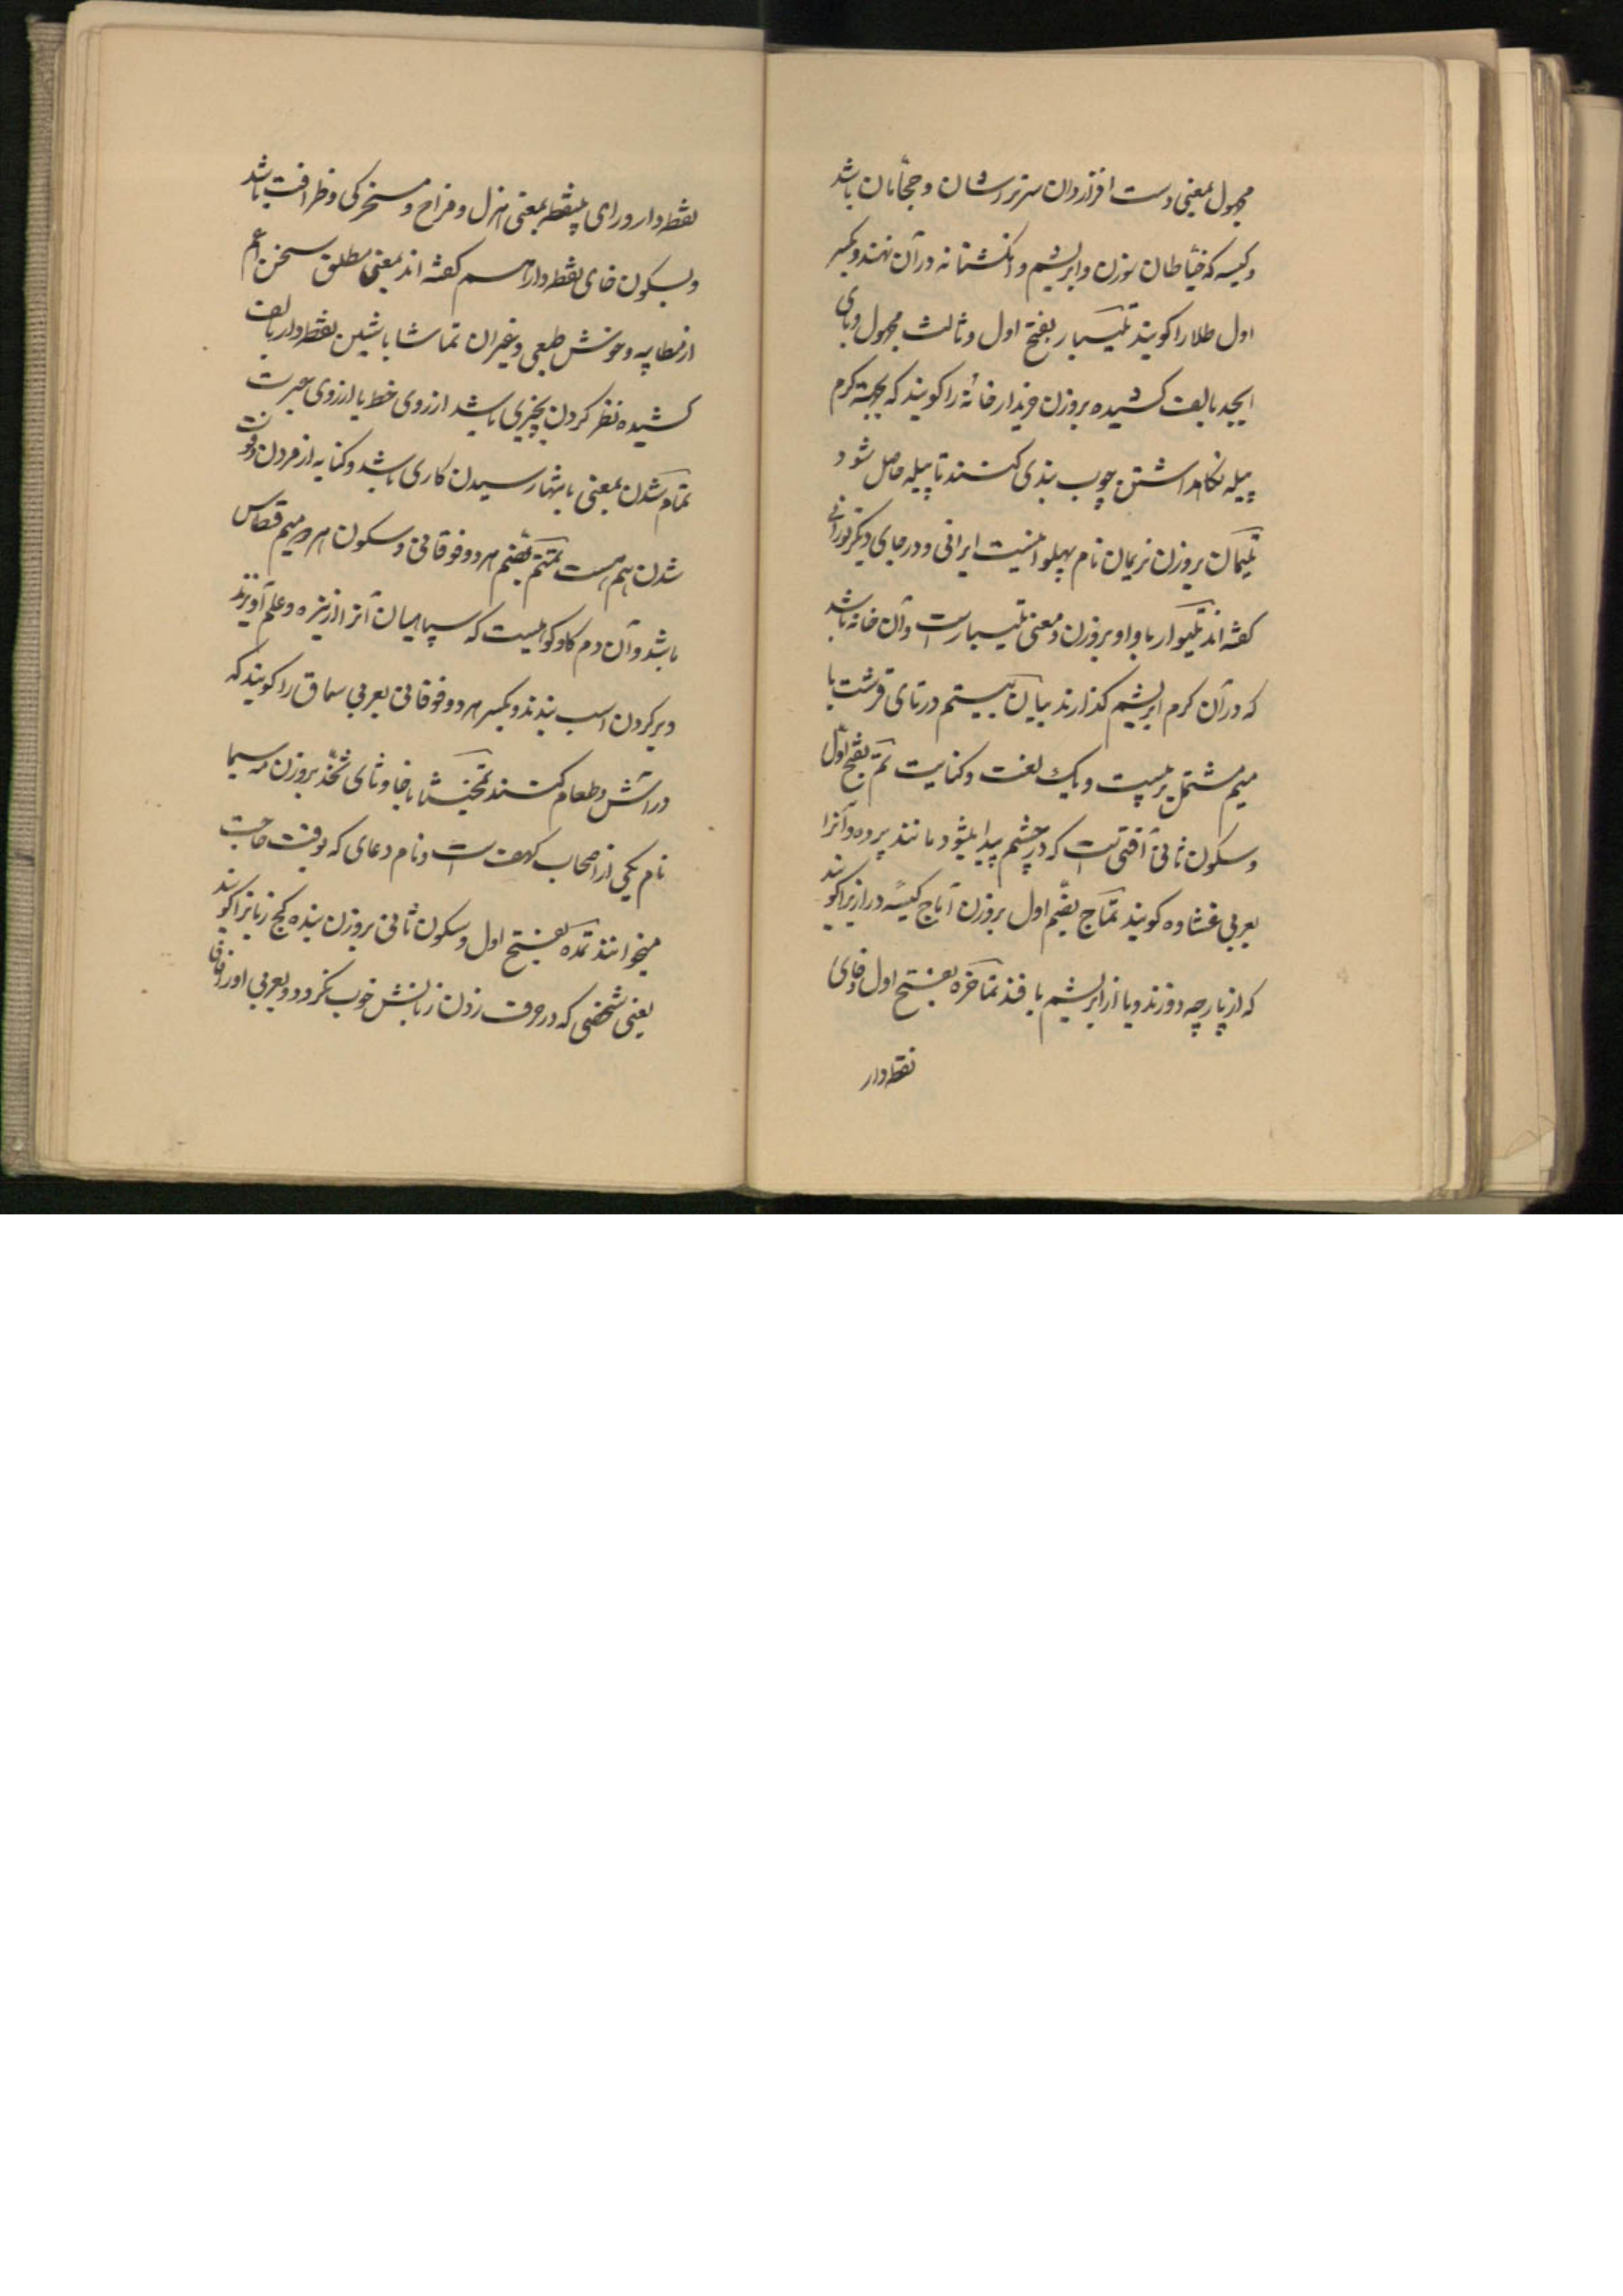 مجهول بمعنی دست افزاردان سرتراشان و حجّامان باشد
و کیسه که خیّاطان سوزن و ابریشم و انکشتانه در آن نهند و بکسر
اول طلا را کویند تلیسبار بفتح اول و ثالث مجهول و بای
ابجد بالف کشیده بروزن خریدار خانهٔ را کویند که بجهة کرم
پیله نکاهداشتن چوب بندی کنند تا پیله حاصل شود
تلیمان بروزن نریمان نام پهلوانیست ایرانی و در جای دیکر تورانی
کفته اند تلیوار با واو بروزن و معنی تلیبار است و آن خانه باشد
که در آن کرم ابریشم کذارند بیان بیستم در تای قرشت با
میم مشتمل بر بیست و یک لغت و کنایت تم بفتح اوّل
و سکون ثانی آفتی است که در چشم پیدا میشود مانند پرده و آنرا
بعربی غشاوه کویند تماج بضّم اول بروزن آماج کیسهٔ دراز را کویند
که از پارچه دوزند و یا از ابریشم بافند تماخره بفتح اول و خای
نقطه‌دار
نقطه دار و رای بینقطه بمعنی هزل و مزاح و مسخرکی و ظرافت باشد
و بسکون خای نقطه دار هم کفته اند بمعنی مطلق سخن اعم
از مطایبه و خوش طبعی و غیر آن تماشا با شین نقطه دار بالف
کشیده نظر کردن بچیزی باشد از روی خط یا از روی عبرت
تمام شدن بمعنی بانتها رسیدن کاری باشد و کنایه از مردن و فوت
شدن هم هست تمتم بضّم هر دو فوقانی و سکون هر دو میم قطاس
باشد و آن دم کاو کوهیست که سپاهیان آنرا از نیزه و علم آویزند
و بر کردن اسب بندند و بکسر هر دو فوقانی بعربی سماق را کویند که
در آش و طعام کنند تمخیثا با خا و ثای ثخّذ بروزن مه سیما
نام یکی از اصحاب کهف است و نام دعای که بوقت حاجت
میخوانند تمده بفتح اول و سکون ثانی بروزن بنده کج زبانرا کویند
یعنی شخصی که در حرف زدن زبانش خوب نکردد و بعربی او را فافا